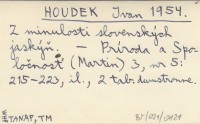 HOUDEK Ivan 1954.
Z minulosti slovenských
jaskýň. — Príroda a Spo-
ločnosť (Martin) 3, nr 5:
215-223, il., 2 tab. dwustronne.
TANAP, TM